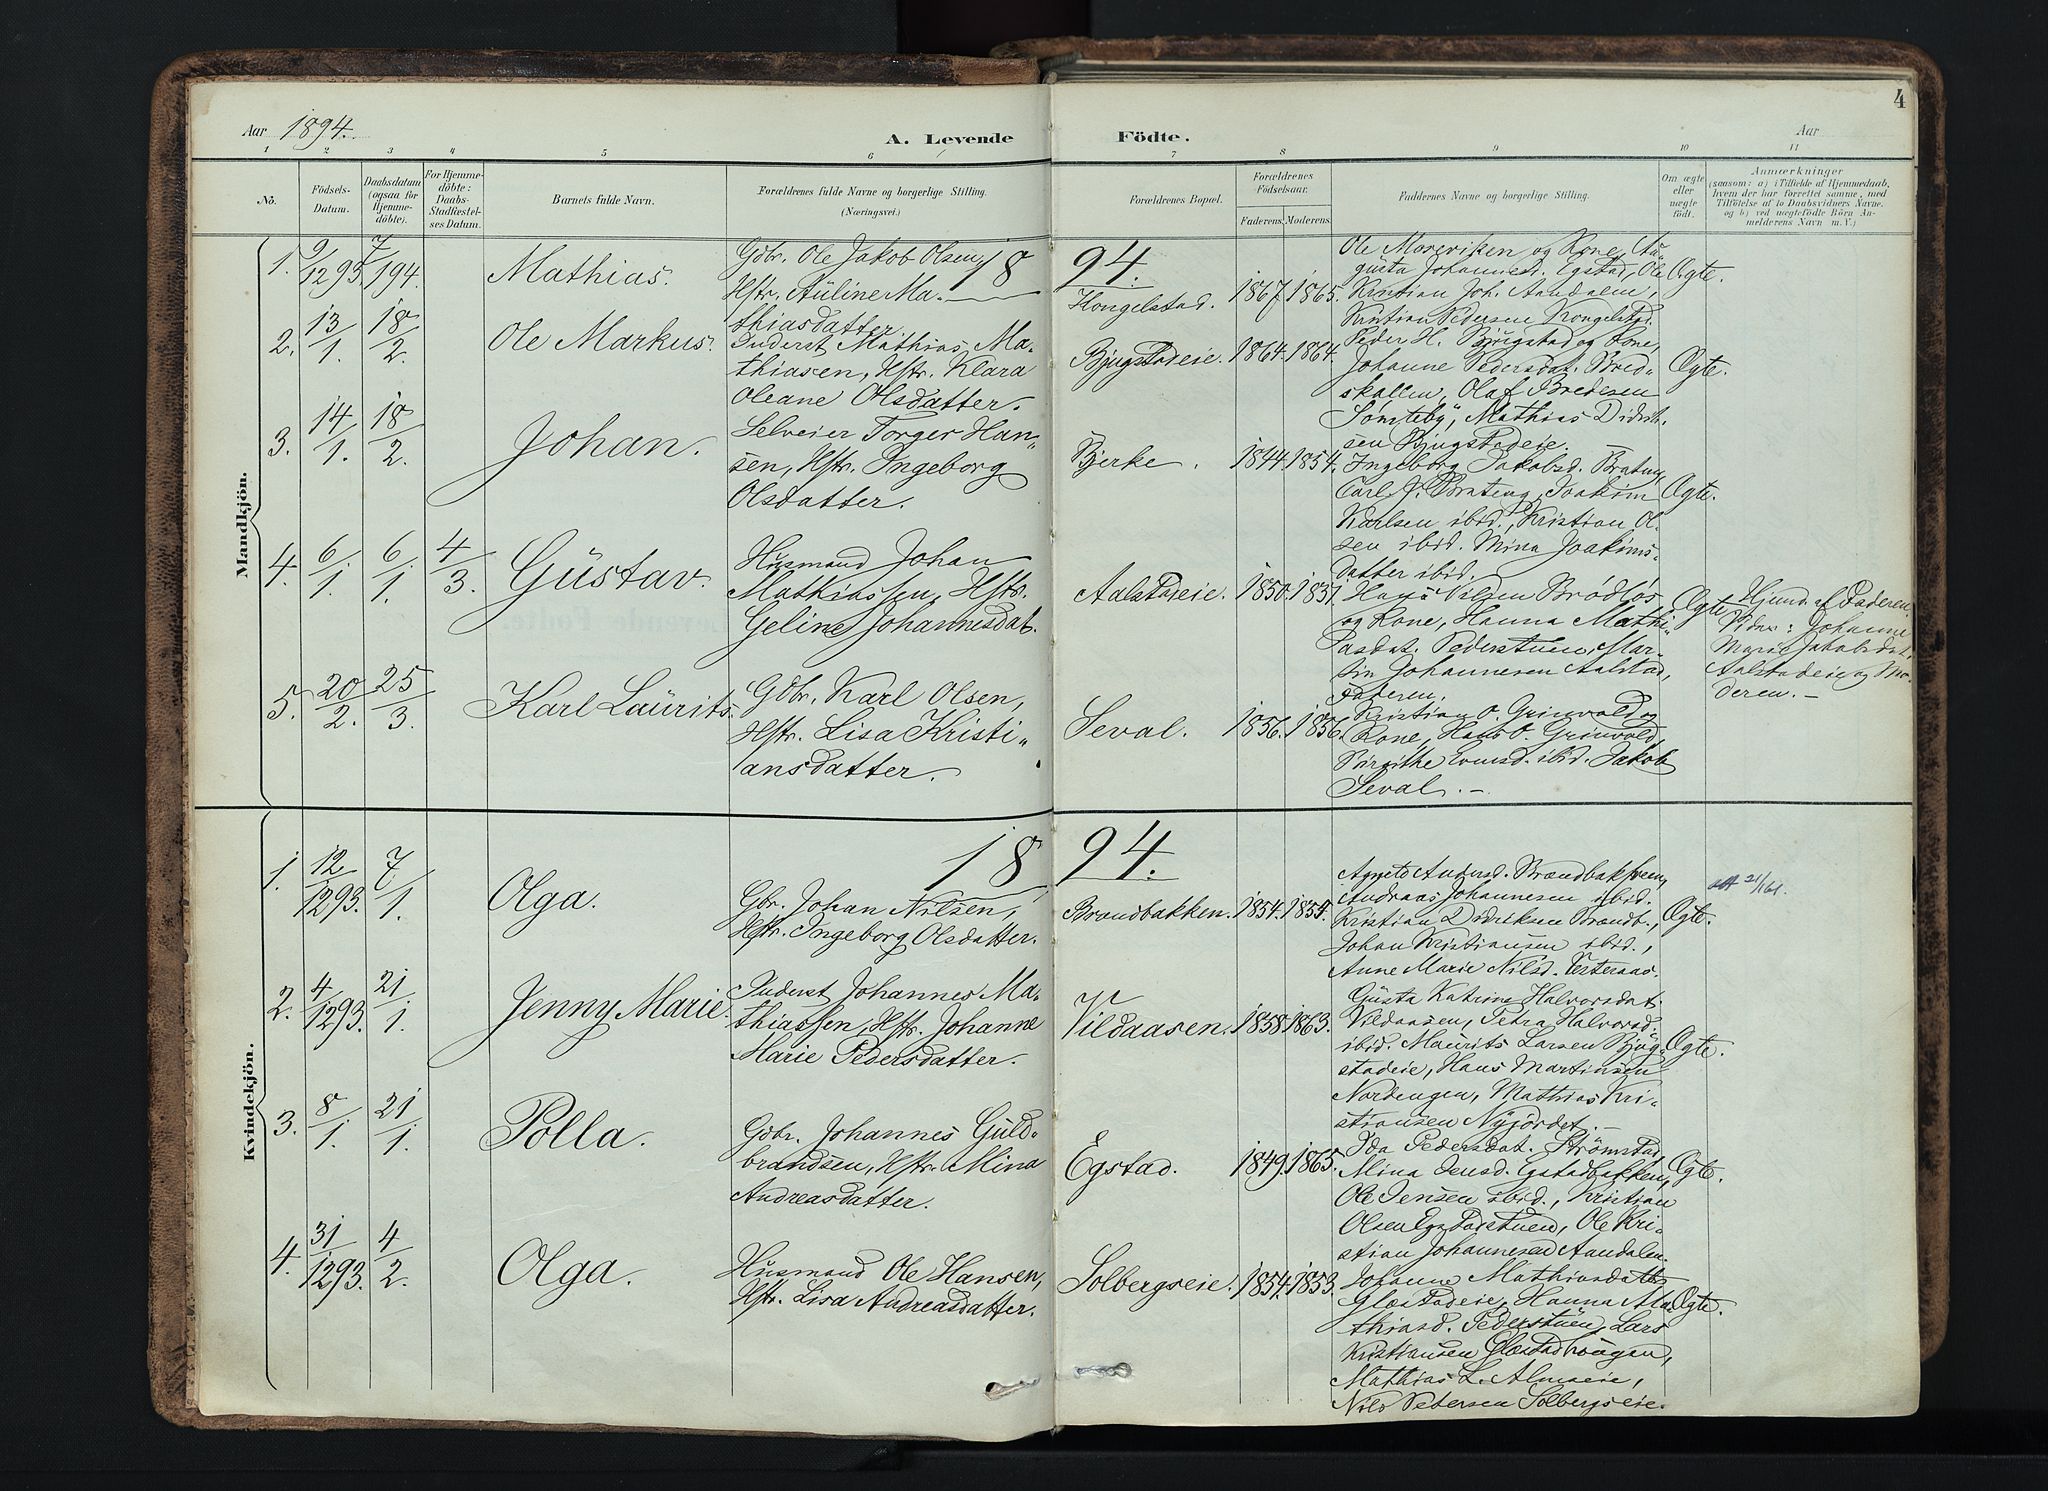 4
Aar 1894.
A. Levende
Födte.
Aar
1 2 3 4 5 6 7 8 9 10 11
No.
Födsels-
Datum.
Daabsdatum
(ogsaa for
Hjemme-
döbte).
For Hjemme-
döbte:
Daabs-
Stadfæstel-
ses Datum.
Barnets fulde Navn.
Forældrenes fulde Navne og borgerlige Stilling.
(Næringsvei.)
Forældrenes Bopæl.
Forældrenes
Födselsaar.
Faderens.
Moderens.
Faddernes Navne og borgerlige Stilling.
Om ægte
eller
uægte
födt.
Anmærkninger
(saasom: a) i Tilfælde af Hjemmedaab,
hvem der har forrettet samme, med
Tilföielse af to Daabsvidners Navne.
og b) ved uægtefödte Börn An-
melderens Navn m. V.)
Mandkjön.
1894.
1. 9/12 93. 7/1 94. Mathias.
Gdbr. Ole Jakob Olsen,
Hstr. Auline Ma-
thiasdatter.
Hongelstad. 1867. 1865.
Ole Moreviken og Kone, Au-
gusta Johannesd. Egstad, Ole
Kristian Joh. Aandalen,
Kristian Pedersen Hongelstad.
Ægte.
2. 13/1. 18/2. Ole Markus.
Inderst Mathias Ma-
thiasen, Hstr. Klara
Oleane Olsdatter.
Bjugstadeie. 1864. 1864.
Peder H. Bjugstad og Kone,
Johanne Pedersdat. Bred-
skallen, Olaf Bredesen
Sømteby, Mathias Didrik-
sen Bjugstadeie.
Ægte.
3. 14/1. 18/2. Johan.
Selveier Torger Han-
sen, Hstr. Ingeborg
Olsdatter.
Bjerke. 1844. 1854.
Ingeborg Jakobsd. Braten,
Carl J. Brateng, Joakim
Karlsen ibid., Kristian Ol-
sen ibid. Mina Joakims-
datter ibid.
Ægte.
4. 6/1. 6/1. 4/3. Gustav.
Husmand Johan
Mathiassen, Hstr.
Geline Johannesdat.
Aalstadeie. 1850. 1851.
Hans Nilsen Brodløs
og Kone, Hanna Mathi-
asdat. Pederstuen, Mar-
tin Johannesen Aalstad,
Faderen.
Ægte
Hjemd. af Faderen.
Vidner: Johanne
Marie Jakobsdat.
Aalstadeie og Mo-
deren. –
5. 20/2. 25/3. Karl Laurits.
Gdbr. Karl Olsen,
Hstr. Lisa Kristi-
ansdatter.
Seval. 1856. 1856.
Kristian O. Grinvold og
Kone, Hans O. Grinvold,
Birgithe Evensd. ibid. Jakob
Seval. –
Kvindekjön.
1894.
1. 12/12 93. 7/1. Olga.
Gbr. Johan Nilsen,
Hstr. Ingeborg Olsdatter.
Brændbakken. 1854. 1854.
Agnete Andersd. Brændbakken,
Andreas Johannesen ibid.
Kristian Didriksen Brændb.,
Johan Kristiansen ibid.,
Anne Marie Nilsd. Vesteraas.
Ægte.
att 21/1 61.
2. 4/12 93. 21/1. Jenny Marie.
Inderst Johannes Ma-
thiassen, Hstr. Johanne
Marie Pedersdatter.
Vildaasen. 1858. 1863.
Gusta Katrine Halvorsdat.
Vildaasen, Petra Halvorsd.
ibid. Maurits Larsen Bjug-
stadeie, Hans Martinsen
Nordengen, Mathias Kri-
stiansen Nyjordet. –
Ægte.
3. 8/1. 21/1. Polla.
Gdbr. Johannes Guld-
brandsen, Hstr. Mina
Andreasdatter.
Egstad. 1849. 1865.
Ida Pedersdat. Strømstad,
Mina Jensd. Egstadbakken,
Ole Jensen ibid., Kristian
Olsen Egstadstuen, Ole Kri-
stian Johannesen Aandalen.
Ægte.
4. 31/12 93. 4/2. Olga.
Husmand Ole Hansen,
Hstr. Lisa Andreasdatter.
Solbergseie. 1854. 1853.
Johanne Mathiasdatter
Glæstadeie, Hanna Ma-
thiasd. Pederstuen, Lars
Kristiansen Glæstadhaugen,
Mathias L. Almseie,
Nils Petersen Solbergseie.
Ægte.